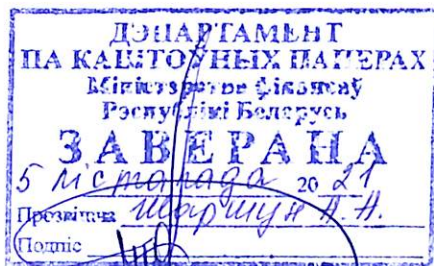 ДЭПАРТАМЕНТ
ПА КАШТОЎНЫХ ПАПЕРАХ
Міністэрства фінансаў
Рэспублікі Беларусь
ЗАВЕРАНА
5 лістапада 20 21
Прозвішча Шаршун А.А.
Подпіс